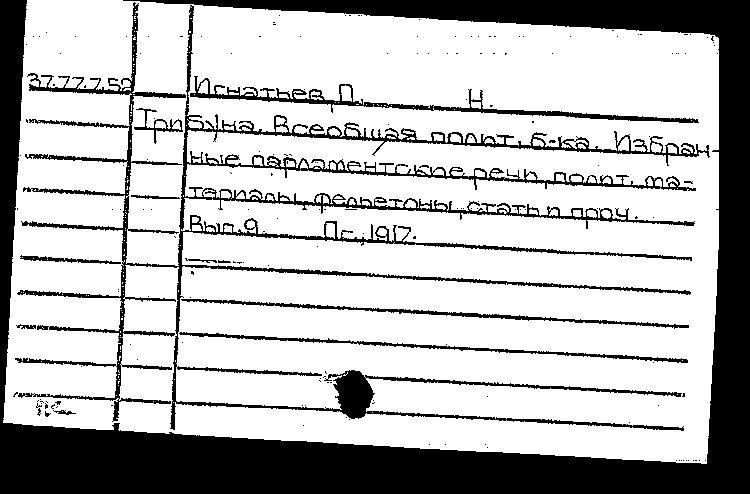 37.77.7.52 Игнатьев, П. Н.
Трибуна. Всеобщая полит. б-ка. Избран-
ные парламентские речи, полит. ма-
териалы, фельетоны, статьи проч.
Вып. 9 Пг., 1917.